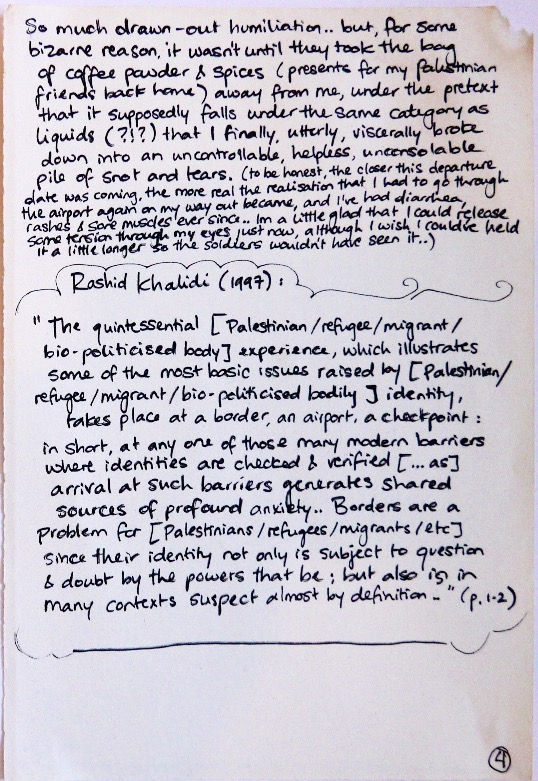 So much drawn-out humiliation.. but, for some
bizarre reason, it wasn't until they took the bag
of coffee powder & spices (presents for my Palestinian
friends back home) away from me, under the pretext
that it supposedly falls under the same category as
liquids (?!?) that I finally, utterly, viscerally broke
down into an uncontrollable, helpless, unconsolable
pile of snot and tears. (to be honest, the closer this departure
date was coming, the more real the realisation that I had to go through
the airport again on my way out became, and I've had diarrhea,
rashes & sore muscles ever since.. Im a little glad that I could release
some tension through my eyes just now, although I wish I could've held
it a little longer so the soldiers wouldn't have seen it..)
Rashid Khalidi (1997):
"The quintessential [Palestinian/refugee/migrant/
bio-politicised body] experience, which illustrates
some of the most basic issues raised by [Palestinian/
refugee/migrant/bio-politicised bodily] identity,
takes place at a border, an airport, a checkpoint:
in short, at any one of those many modern barriers
where identities are checked & verified [...as]
arrival at such barriers generates shared
sources of profound anxiety.. Borders are a
problem for [Palestinians/refugees/migrants/etc]
since their identity not only is subject to question
& doubt by the powers that be; but also is in
many contexts suspect almost by definition.." (p.1-2)
4